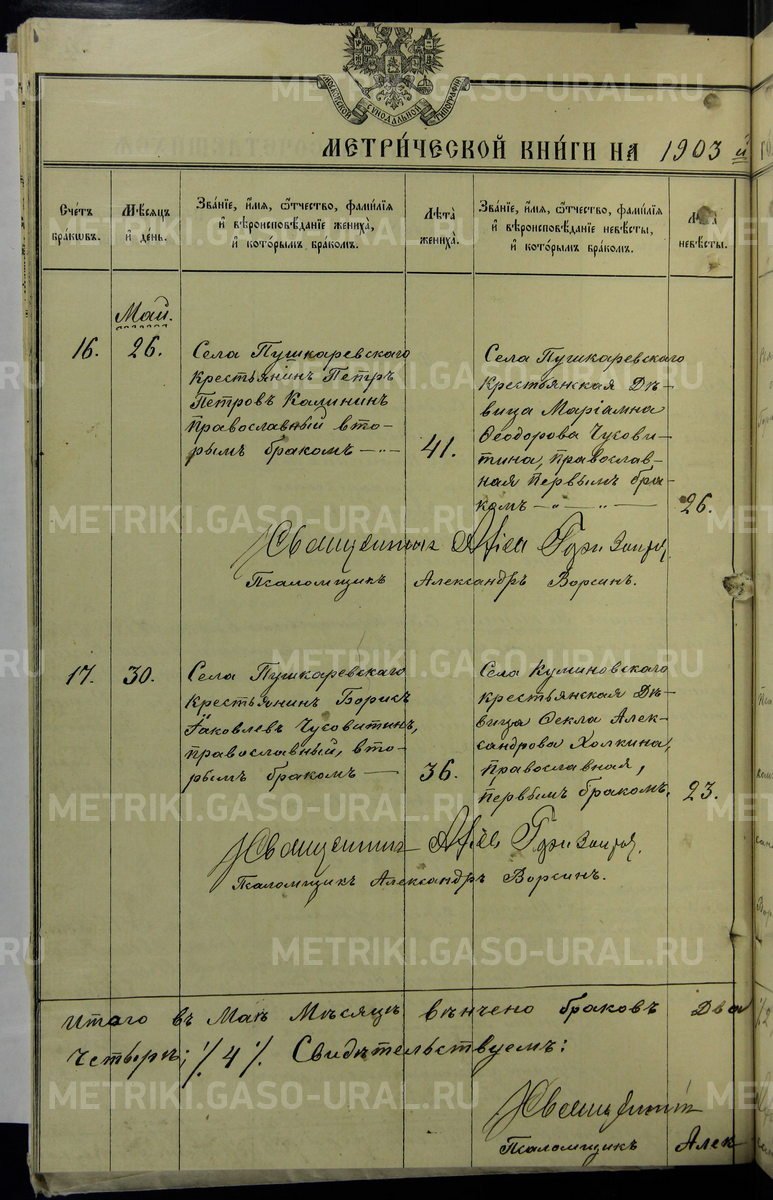 МОСКОВСКОЙ СѴНОДАЛЬНОЙ ТИПОГРАФІИ
МЕТРИ́ЧЕСКОЙ КНИ́ГИ НА 1903 й
Сче́тъ бра́кѡвъ.
Мѣ́сяцъ и҆ де́нь.
Зва́нїе, и҆́мя, ѻ҆́тчество, фами́лїя и҆ вѣроисповѣ́данїе жениха̀, и҆ кото́рымъ бра́комъ.
Лѣ́та жениха̀.
Зва́нїе, и҆́мя, ѻ҆́тчество, фами́лїя и҆ вѣроисповѣ́данїе невѣ́сты, и҆ кото́рымъ бра́комъ.
Лѣ́та невѣ́сты.
Май.
16.
26.
Села Пушкаревскаго
крестьянинъ Петръ
Петровъ Калининъ
православный вто-
рымъ бракомъ — „ —
41.
Села Пушкаревскаго
крестьянская дѣ-
вица Маріамна
Ѳеодорова Чусови-
тина, православ-
ная первымъ бра-
комъ — „ — „ —
26.
Священникъ
Псаломщикъ Александръ Ворсинъ.
17.
30.
Села Пушкаревскаго
крестьянинъ Борисъ
Іаковлевъ Чусовитинъ,
православный, вто-
рымъ бракомъ —
36.
Села Куминовскаго
крестьянская дѣ-
вица Ѳекла Алек-
сандрова Холкина,
православная,
первымъ бракомъ.
23.
Священникъ
Псаломщикъ Александръ Ворсинъ.
Итого въ Маѣ мѣсяцѣ вѣнчено браковъ два
четыре; ·/. 4 ·/. Свидѣтельствуемъ:
Священникъ
Псаломщикъ Алек
METRIKI.GASO-URAL.RU